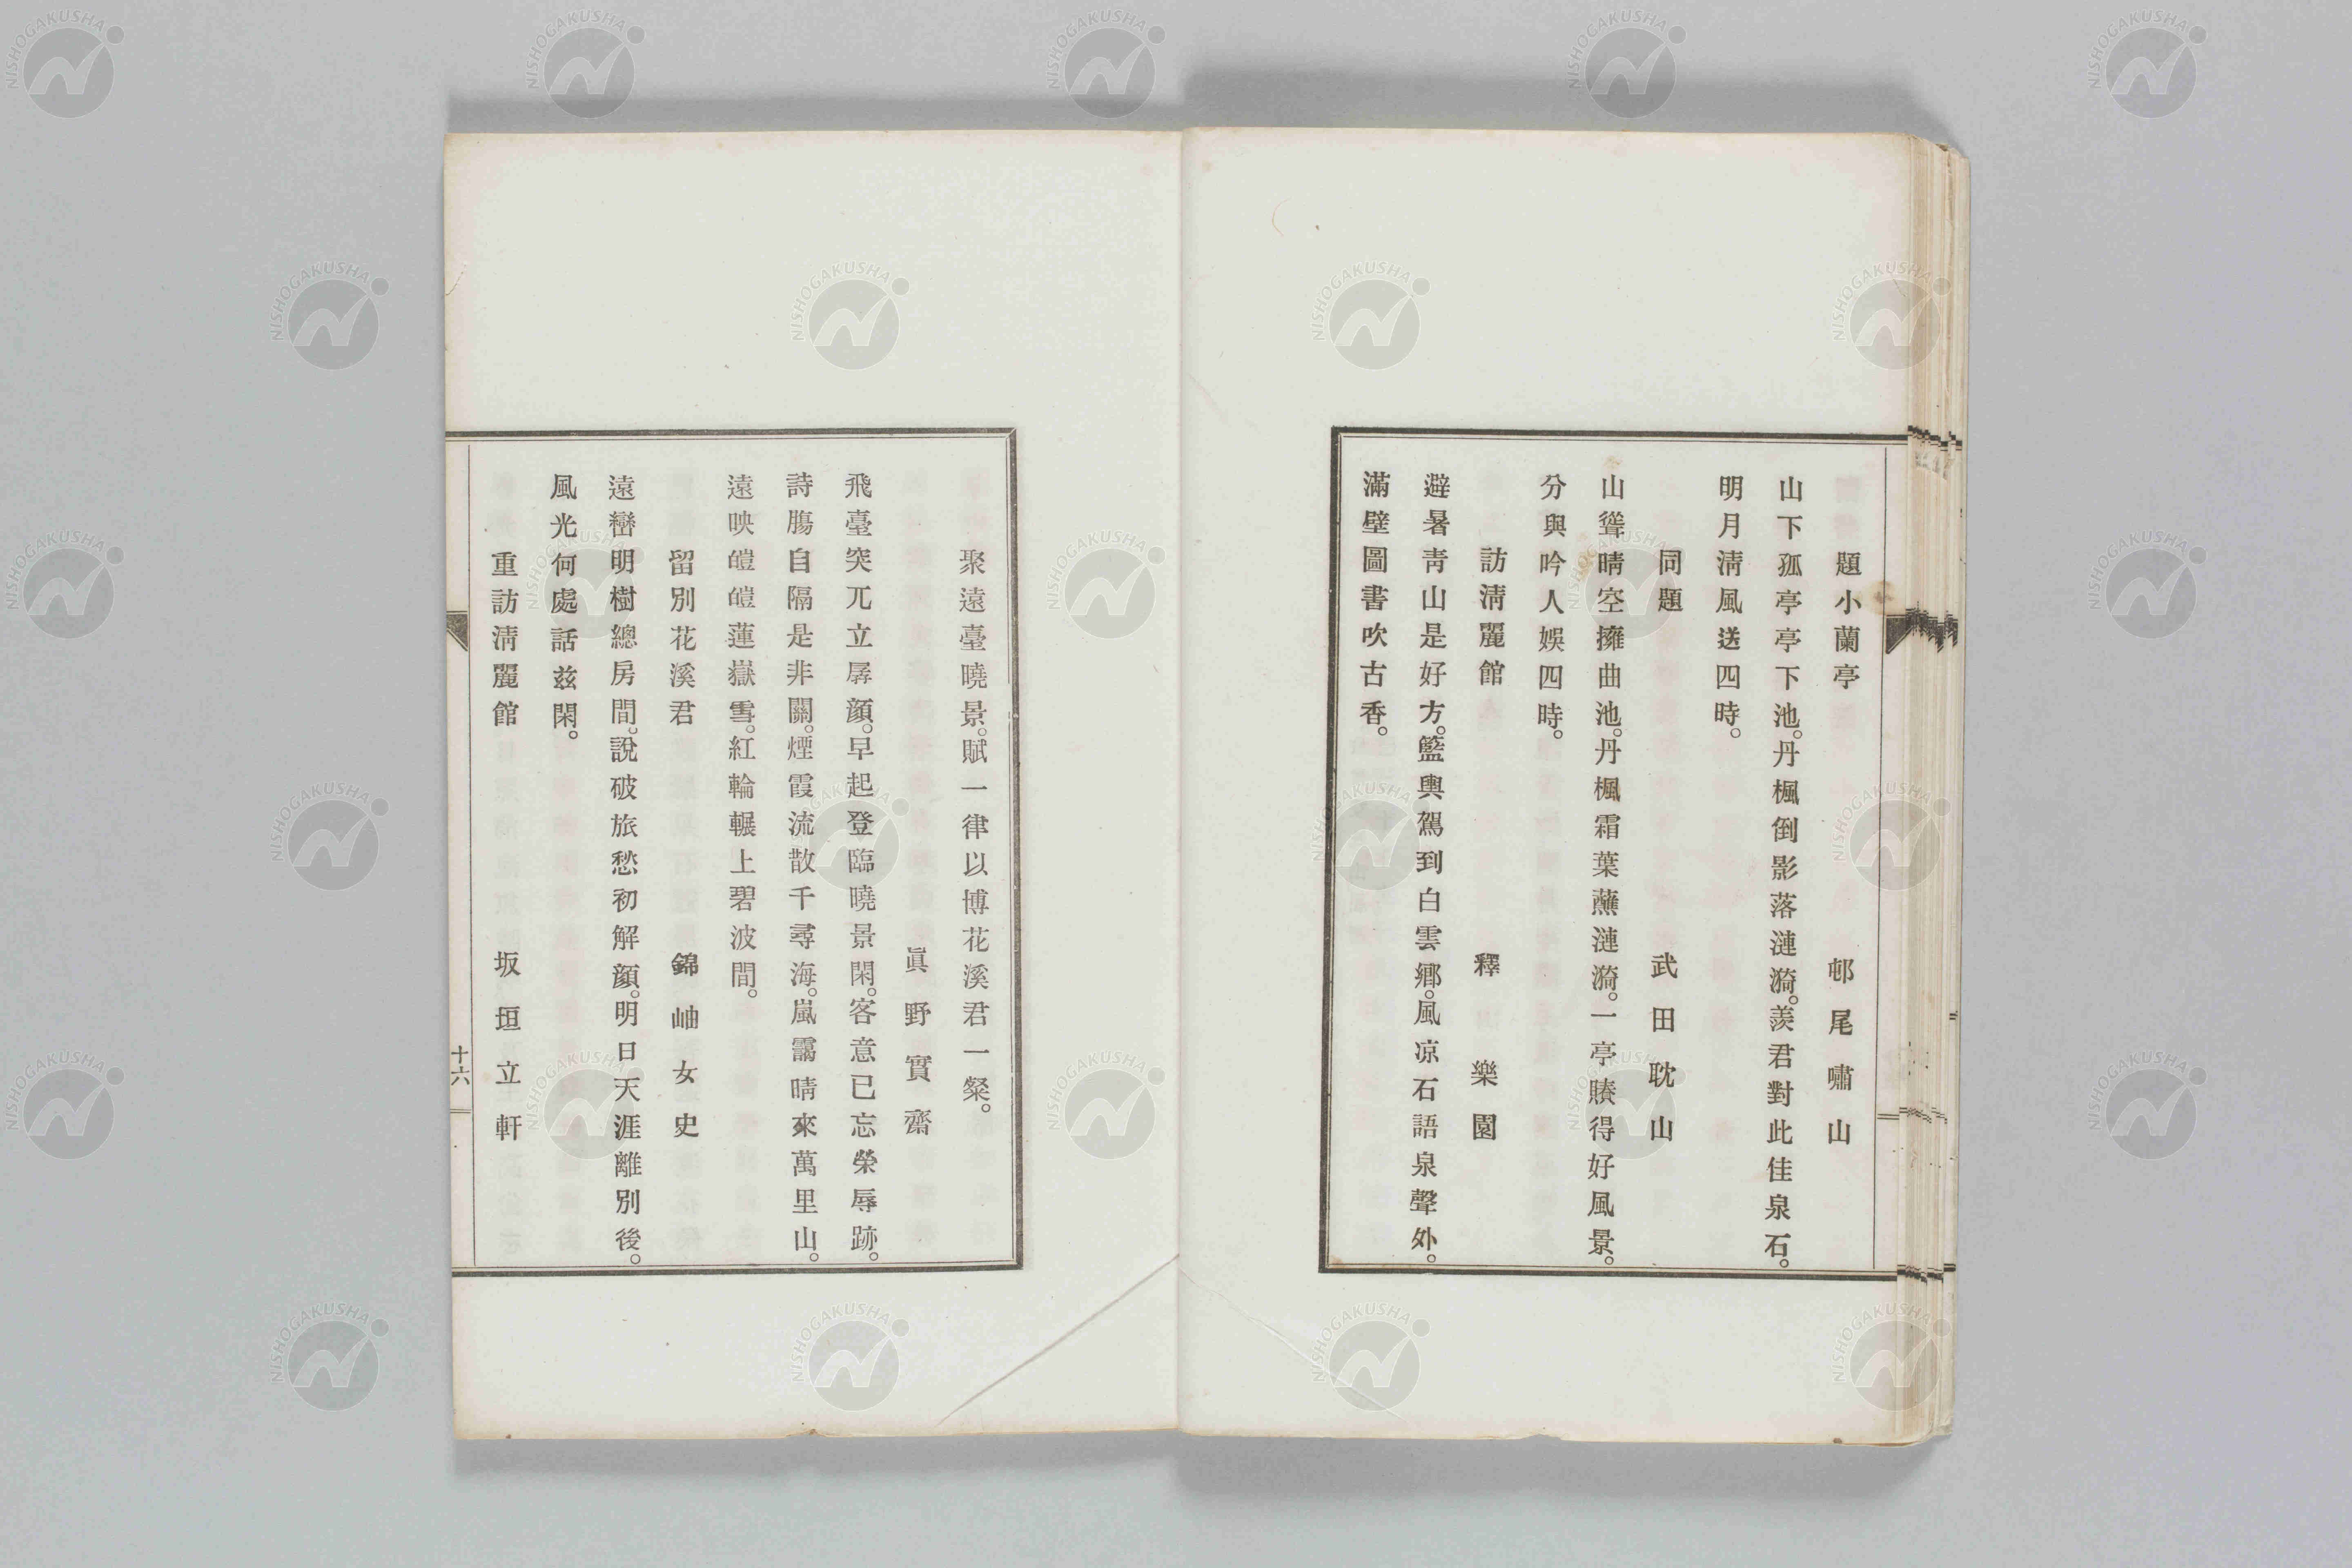 題小蘭亭　邨尾嘯山
山下孤亭亭下池。丹楓倒影落漣漪。羨君對此佳泉石。
明月淸風送四時。
同題　武田耽山
山聳晴空擁曲池。丹楓霜葉蘸漣漪。一亭賸得好風景。
分與吟人娛四時。
訪淸麗館　釋樂園
避暑靑山是好方。籃輿駕到白雲鄕。風凉石語泉聲外。
滿壁圖書吹古香。
聚遠臺曉景。賦一律以博花溪君一粲。
眞野實齋
飛臺突兀立孱顏。早起登臨曉景閑。客意已忘榮辱跡。
詩膓自隔是非關。煙霞流散千尋海。嵐靄晴來萬里山。
遠映皚皚蓮嶽雪。紅輪輾上碧波間。
留別花溪君　錦岫女史
遠巒明樹總房間。說破旅愁初解顏。明日天涯離別後。
風光何處話玆閑。
重訪淸麗館　坂垣立軒
十六
NISHOGAKUSHA